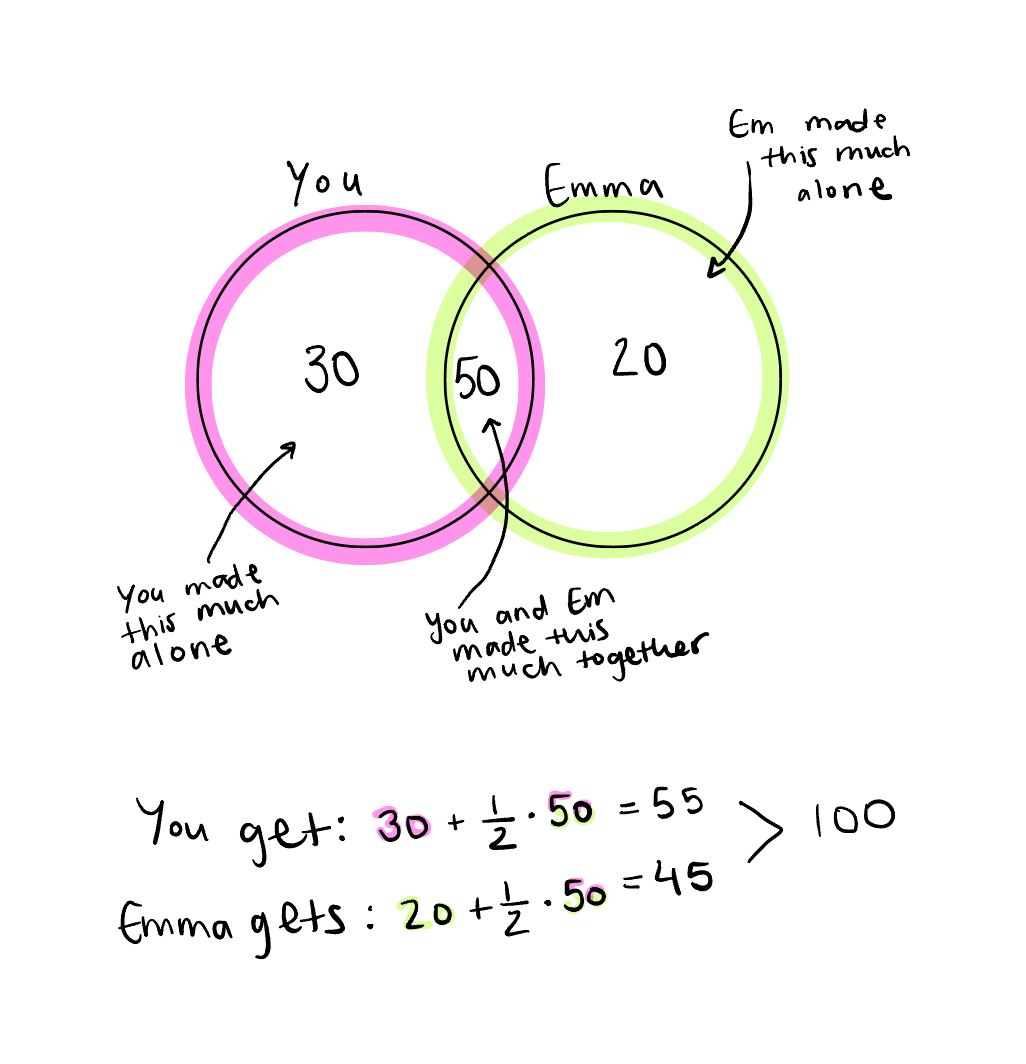 Em made
this much
alone
You
Emma
30
50
20
You made
this much
alone
You and Em
made this
much together
You get: 30 + 1/2 · 50 = 55
Emma gets: 20 + 1/2 · 50 = 45
> 100